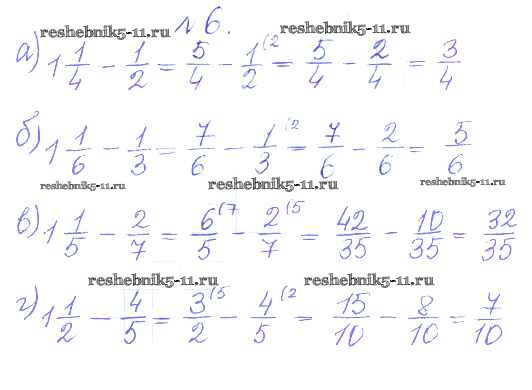 №6.
reshebnik5-11.ru reshebnik5-11.ru
а) 1 1/4 - 1/2 = 5/4 - 1/2 (2 = 5/4 - 2/4 = 3/4
б) 1 1/6 - 1/3 = 7/6 - 1/3 (2 = 7/6 - 2/6 = 5/6
reshebnik5-11.ru reshebnik5-11.ru reshebnik5-11.ru
в) 1 1/5 - 2/7 = 6/5 (7 - 2/7 (5 = 42/35 - 10/35 = 32/35
reshebnik5-11.ru reshebnik5-11.ru
г) 1 1/2 - 4/5 = 3/2 (5 - 4/5 (2 = 15/10 - 8/10 = 7/10